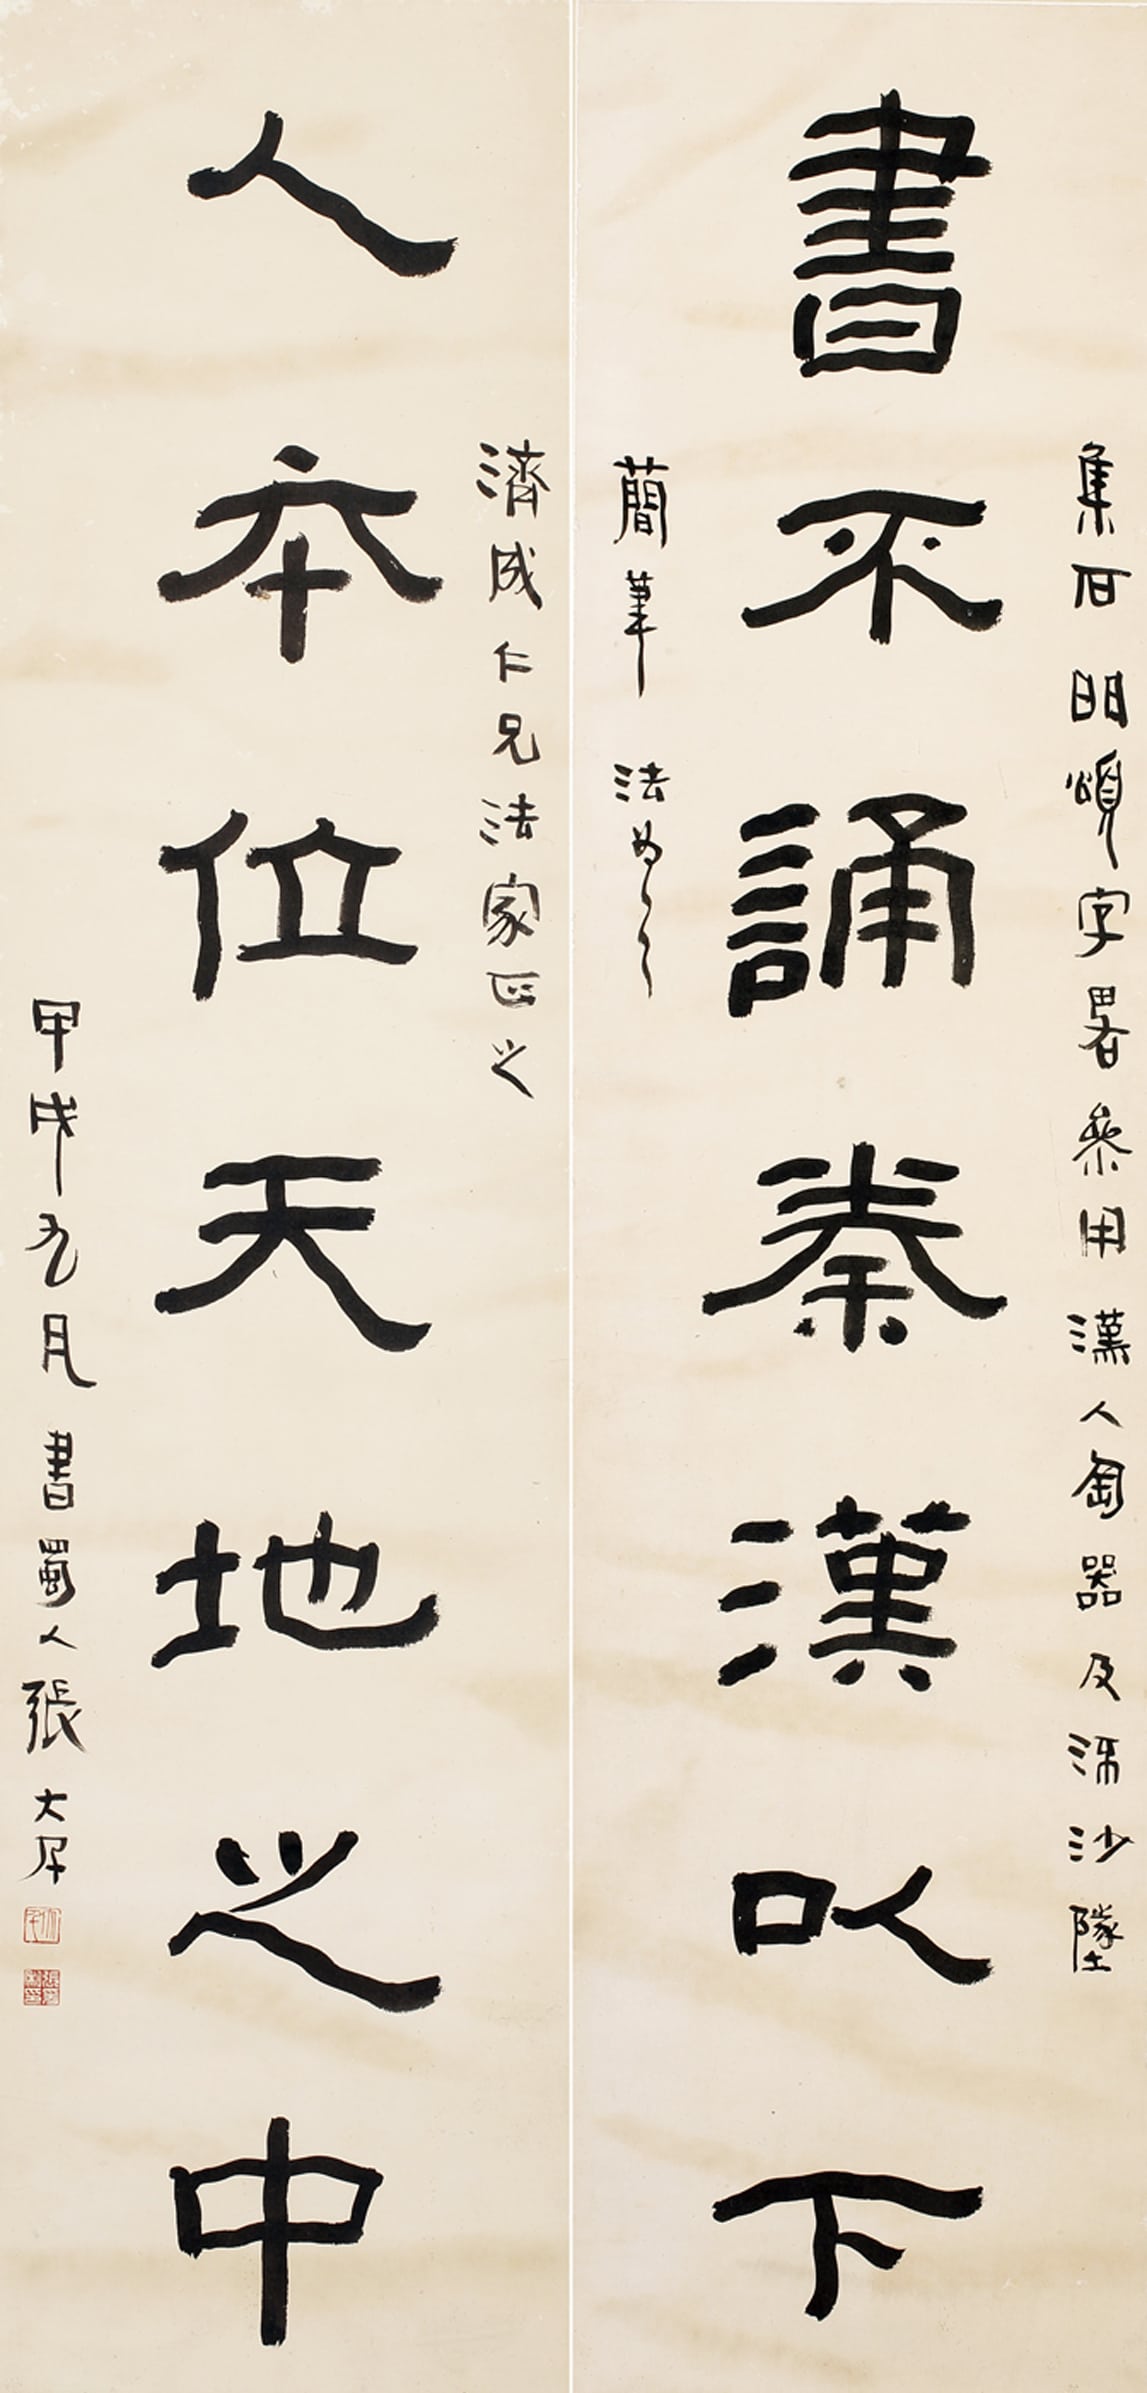 書不誦秦漢以下
集石門頌字畧參用漢人匋器及流沙墜
簡筆法為之
人本位天地之中
濟成仁兄法家正之
甲戌九月書蜀人張大千